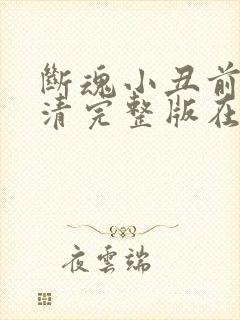 斷魂小丑前
清完整版在
夜雲端